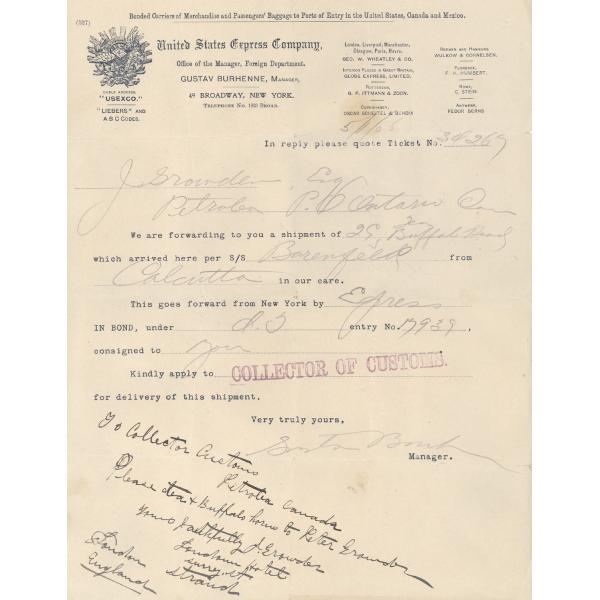 Bonded Carriers of Merchandise and Passengers' Baggage to Ports of Entry in the United States, Canada and Mexico.
(187)
United States Express Company,
Office of the Manager, Foreign Department.
GUSTAV BURHENNE, MANAGER,
49 BROADWAY, NEW YORK.
TELEPHONE No. 1821 BROAD.
CABLE ADDRESS,
"USEXCO."
"LIEBERS" AND
A B C CODES.
London, Liverpool, Manchester,
Glasgow, Paris, Havre,
GEO. W. WHEATLEY & CO.
INTERIOR PLACES IN GREAT BRITAIN,
GLOBE EXPRESS, LIMITED.
ROTTERDAM,
G. F. ITTMANN & ZOON.
COPENHAGEN,
BREMEN AND HAMBURG
WULKOW & CORNELSEN.
FLORENCE,
F. H. HUMBERT.
ROME,
C. STEIN.
ANTWERP,
FEDOR BERNS
In reply please quote Ticket No. 34269
J Growden Esq
Petrolea P.O Ontario Can
We are forwarding to you a shipment of Buffalo
which arrived here per S/S Barenfeld from
Calcutta in our care.
This goes forward from New York by Express
IN BOND, under entry No. 17939,
consigned to you
Kindly apply to COLLECTOR OF CUSTOMS.
for delivery of this shipment.
Very truly yours,
Manager.
To Collector Customs
Petrolea Canada
Please tea & Buffalo horns to Peter Growden
Yours faithfully J. Growden
Hotel
Surrey St
Strand
London
England